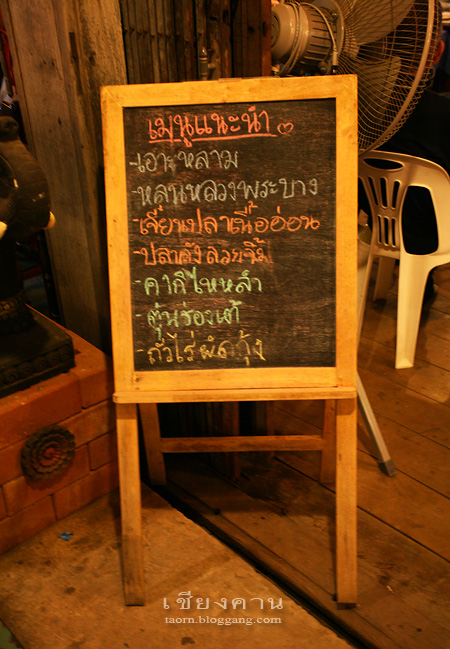 เมนูแนะนำ
-เอาะหลาม
-หลนหลวงพระบาง
-เจี๋ยนปลาเนื้ออ่อน
-ปลาคังลวยจิ้ม
-คากิไหหลำ
-ตุ๋นร่องเต้
-ถั่วไร่ผัดกุ้ง
เชียงคาน
taorn.bloggang.com